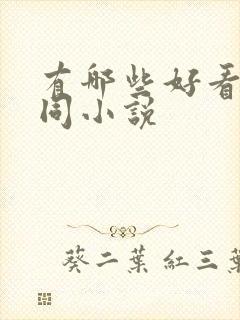 有哪些好看
同小说
葵二葉紅三葉